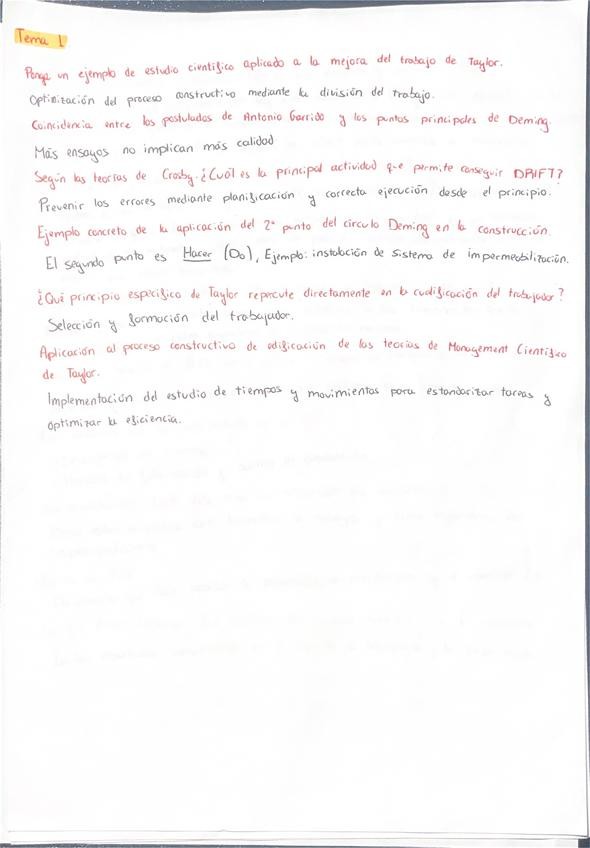 Tema 1
Ponga un ejemplo de estudio científico aplicado a la mejora del trabajo de Taylor.
Optimización del proceso constructivo mediante la división del trabajo.
Coincidencia entre los postulados de Antonio Garrido y los puntos principales de Deming.
Más ensayos no implican más calidad
Según las teorías de Crosby. ¿Cuál es la principal actividad que permite conseguir DRIFT?
Prevenir los errores mediante planificación y correcta ejecución desde el principio.
Ejemplo concreto de la aplicación del 2º punto del circulo Deming en la construcción.
El segundo punto es Hacer (Do), Ejemplo: instalación de sistema de impermeabilización.
¿Qué principio especifico de Taylor repercute directamente en la cualificación del trabajador?
Selección y formación del trabajador.
Aplicación al proceso constructivo de edificación de las teorías de Management Científico
de Taylor.
Implementación del estudio de tiempos y movimientos para estandarizar tareas y
optimizar la eficiencia.